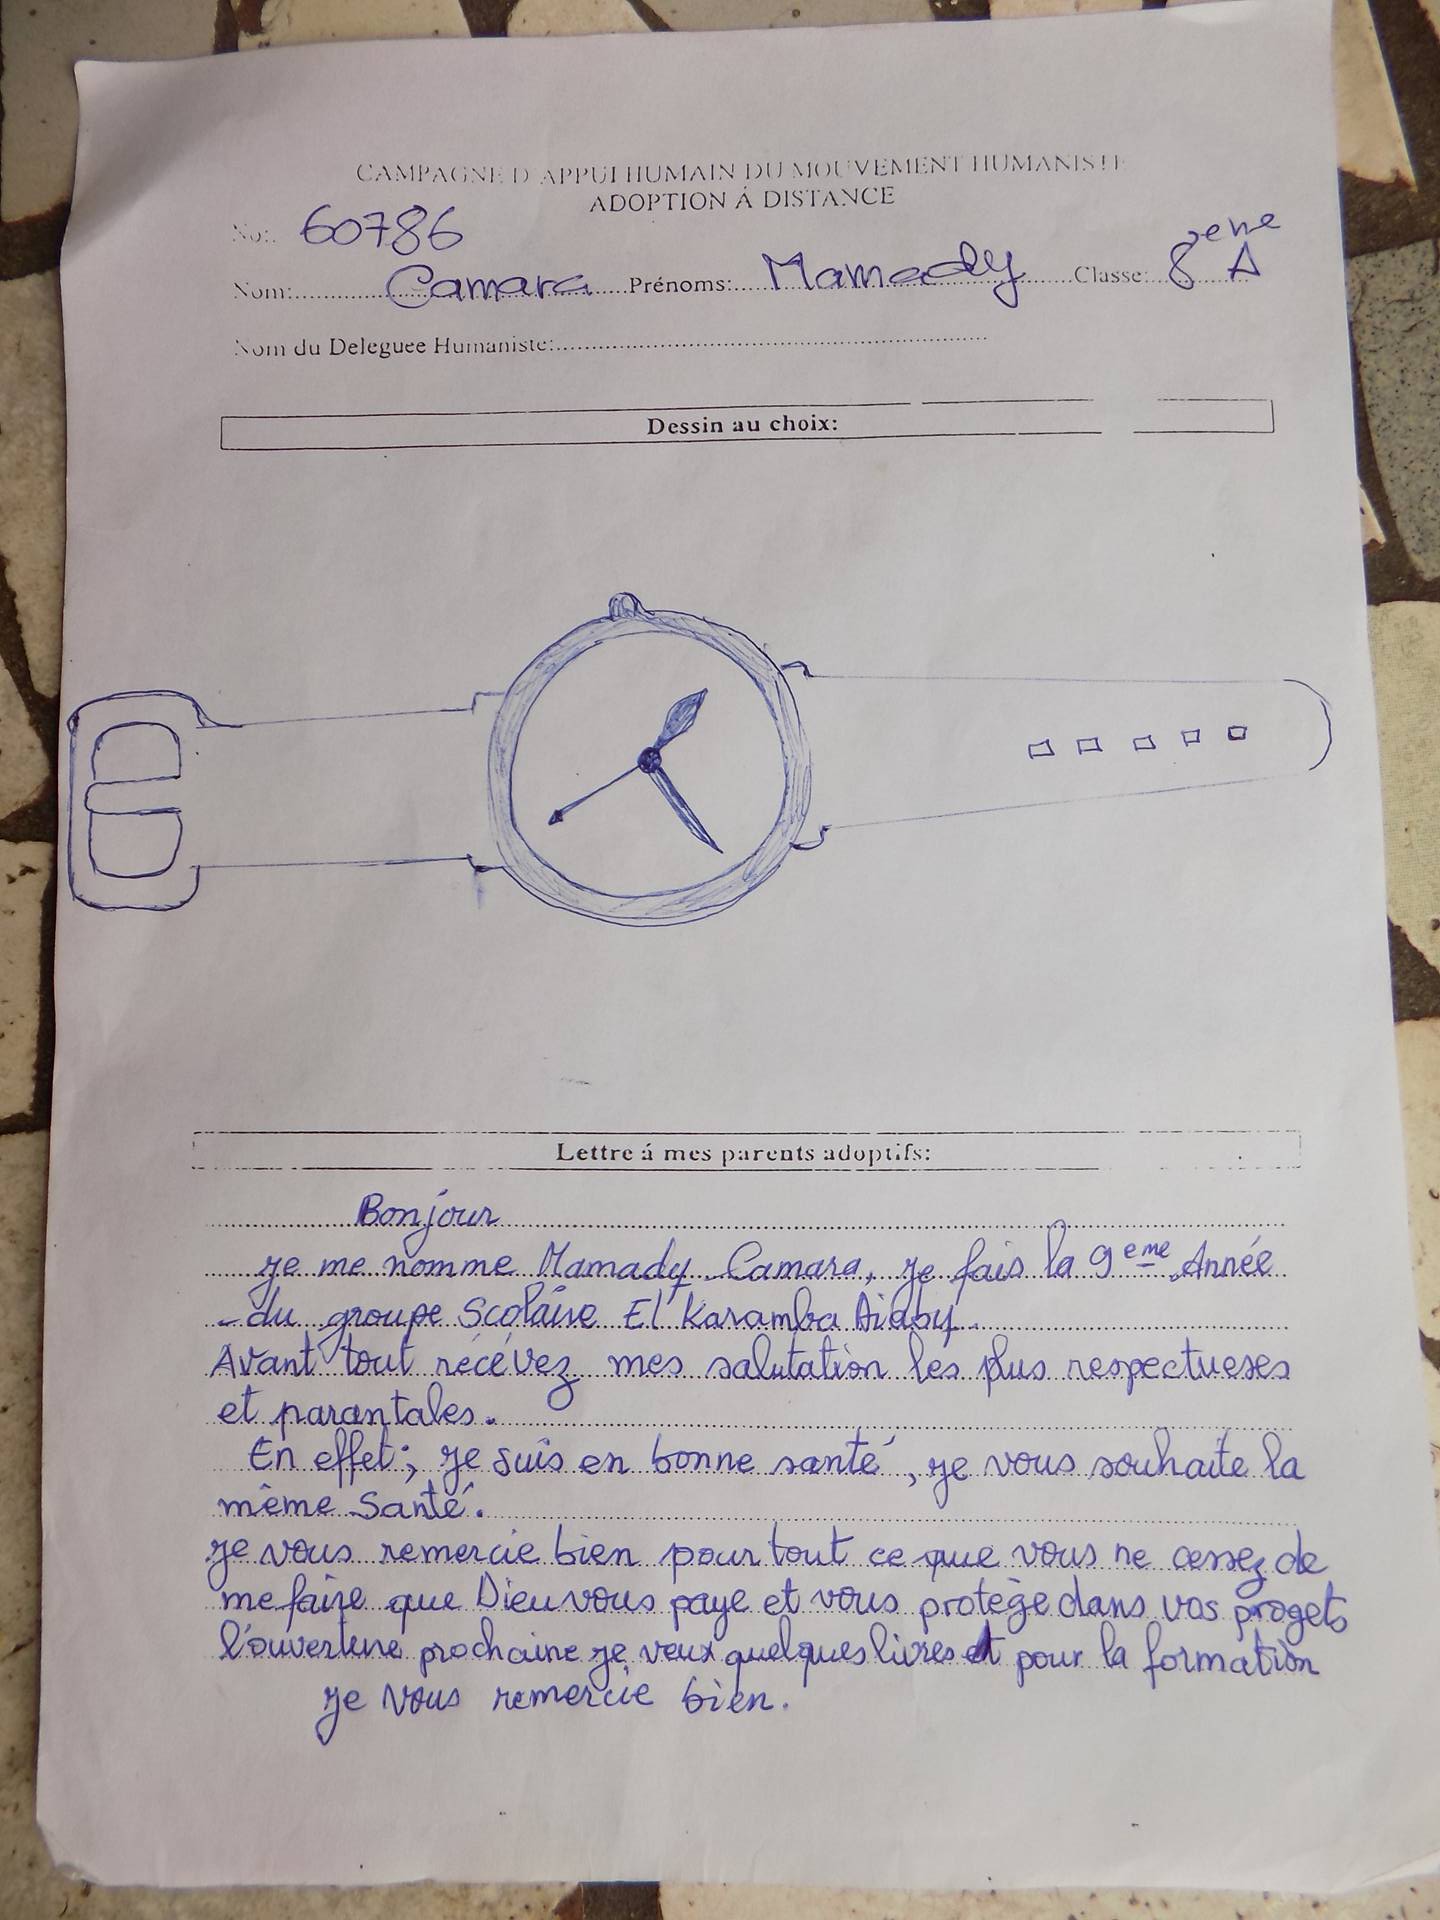 CAMPAGNE D'APPUI HUMAIN DU MOUVEMENT HUMANISTE
ADOPTION Á DISTANCE
No:. 60786
Nom:............Camara......Prénoms:....Mamady.......Classe: 8eme A
Nom du Deleguee Humaniste:................................................
Dessin au choix:
Lettre á mes parents adoptifs:
Bonjour
je me nomme Mamady Camara, je fais la 9eme Année
du groupe Scolaire El Karamba Diaby.
Avant tout récévez mes salutation les plus respectueses
et parantales.
En effet; je suis en bonne santé, je vous souhaite la
même santé.
je vous remercie bien pour tout ce que vous ne cessez de
me faire que Dieu vous paye et vous protège dans vos progets
l'ouverture prochaine je veux quelques livres et pour la formation
je vous remercie bien.